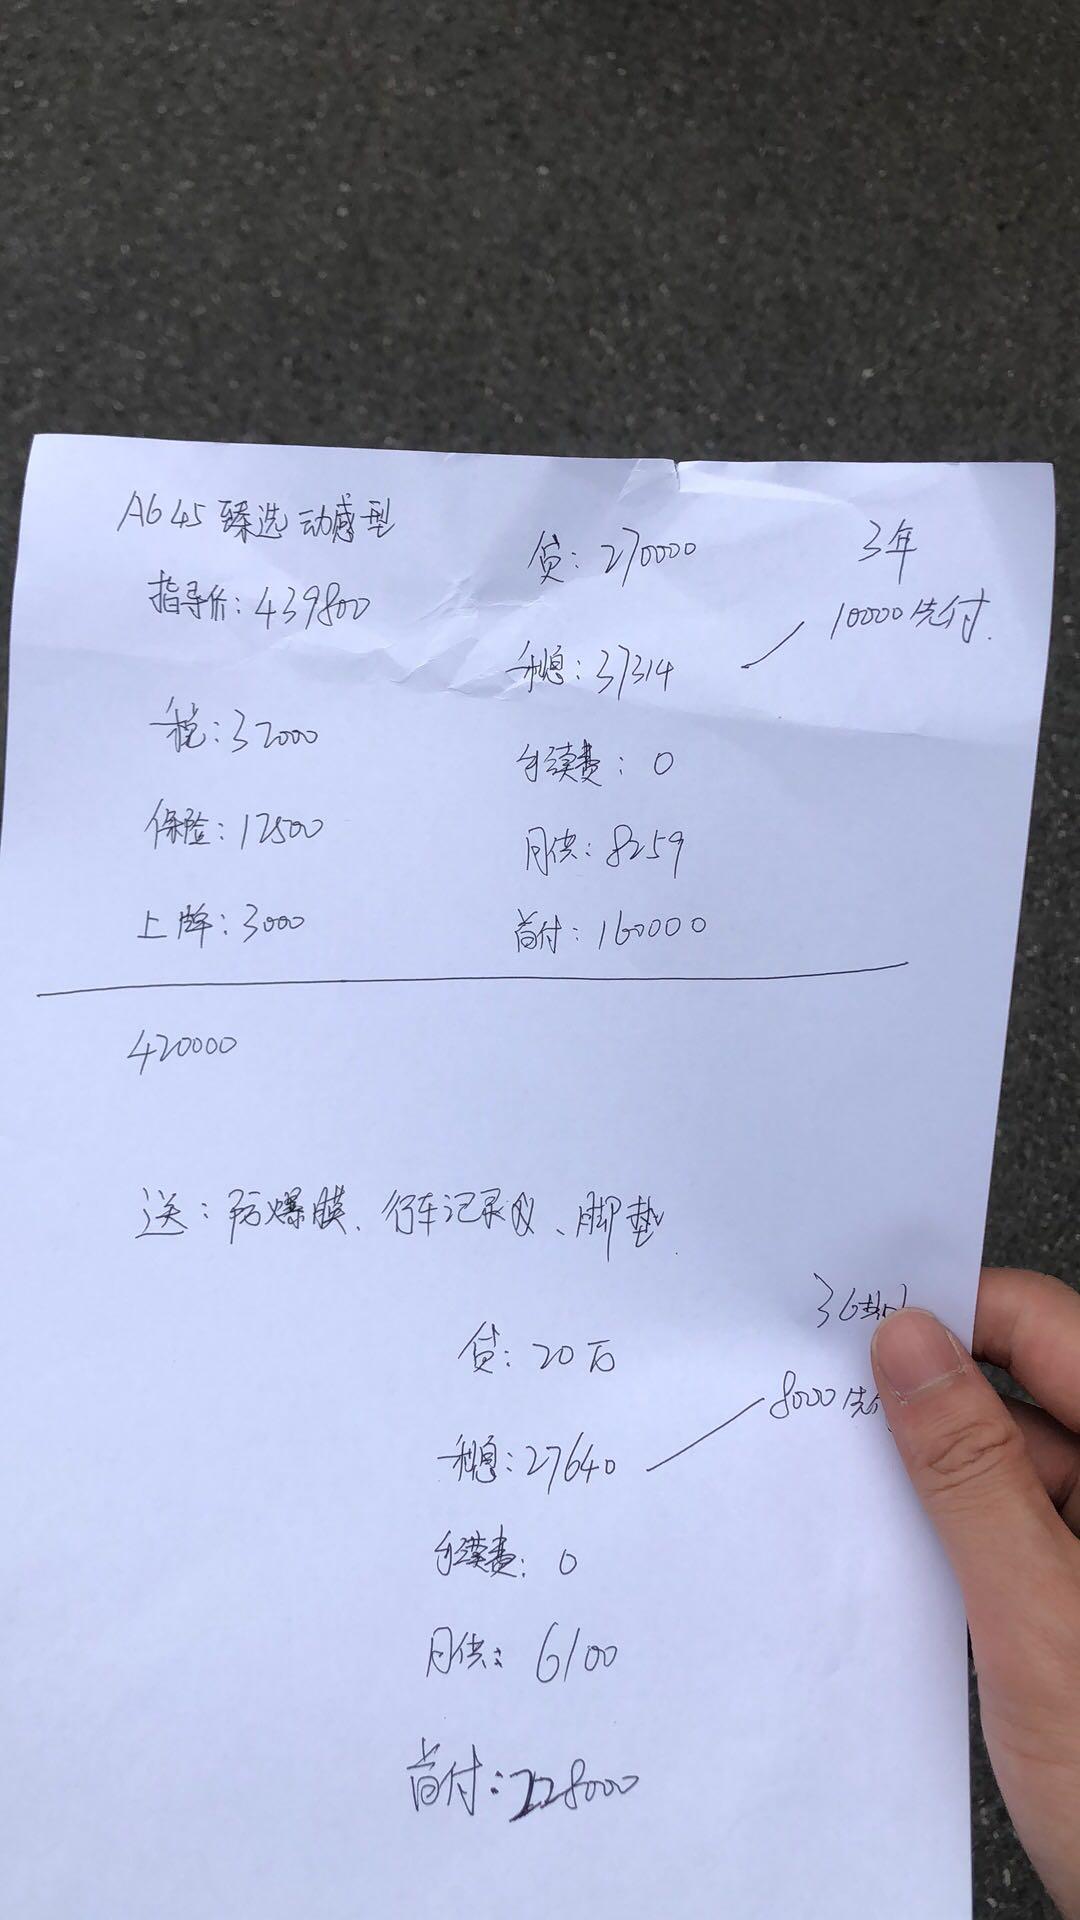 A6 45 臻选动感型
指导价：439800
税：32000
保险：12500
上牌：3000
贷：270000
3年
利息：37314
10000先付.
手续费：0
月供：8259
首付：160000
420000
送：防爆膜、行车记录仪、脚垫
贷：20万
36期
利息：27640
8000先
手续费：0
月供：6100
首付：228000